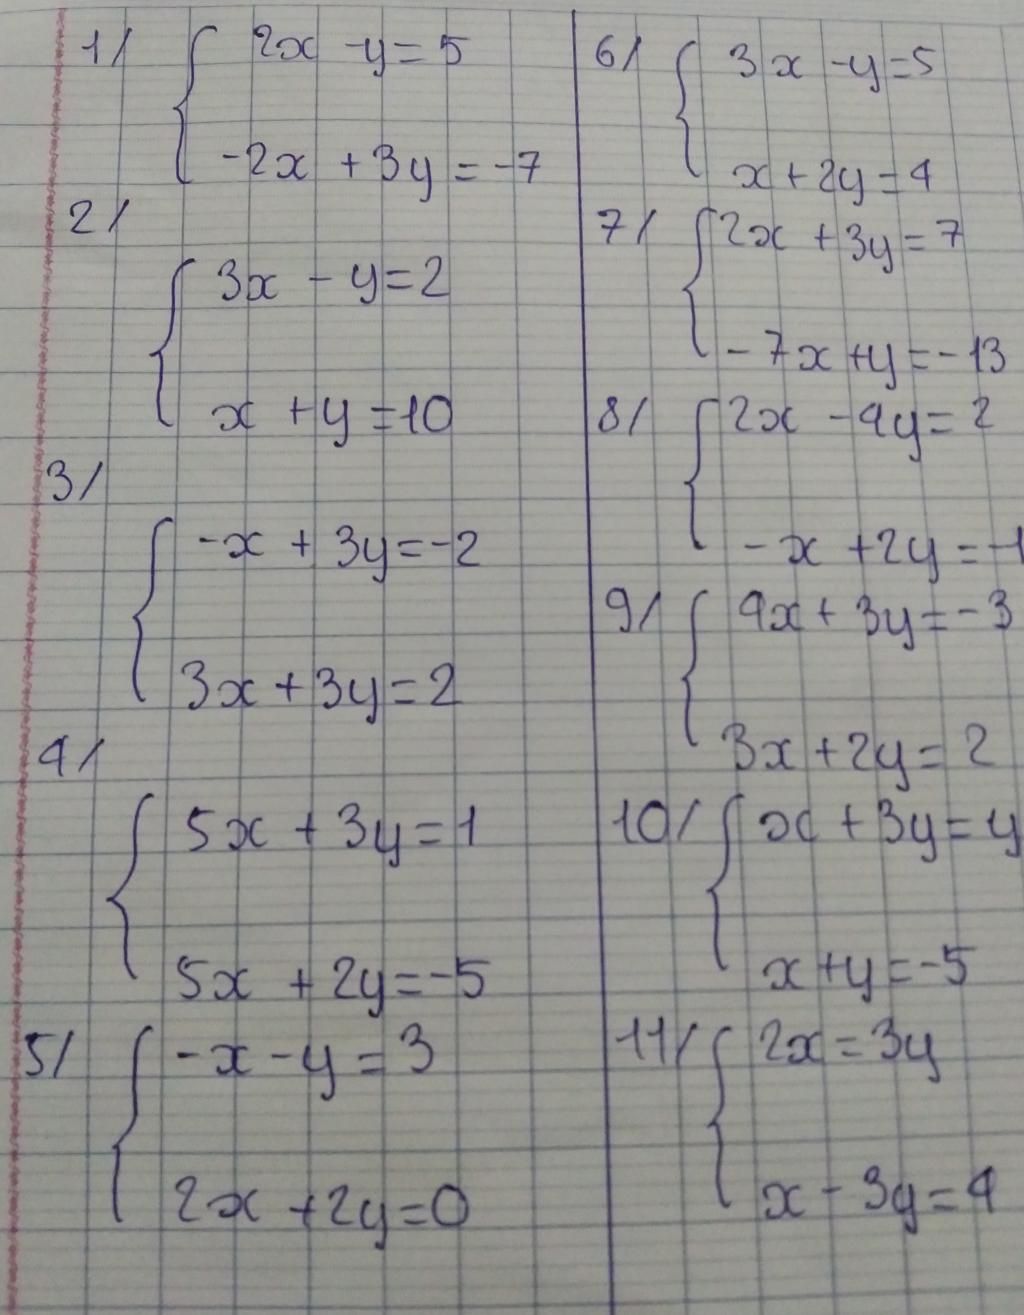 1/ 2x - y = 5
-2x + 3y = -7
2/
3x - y = 2
x + y = 10
3/
-x + 3y = -2
3x + 3y = 2
4/
5x + 3y = 1
5x + 2y = -5
5/ -x - y = 3
2x + 2y = 0
6/ 3x - y = 5
x + 2y = 4
7/ 2x + 3y = 7
-7x + y = -13
8/ 2x - 4y = 2
-x + 2y = -1
9/ 4x + 3y = -3
3x + 2y = 2
10/ x + 3y = y
x + y = -5
11/ 2x = 3y
x - 3y = 4